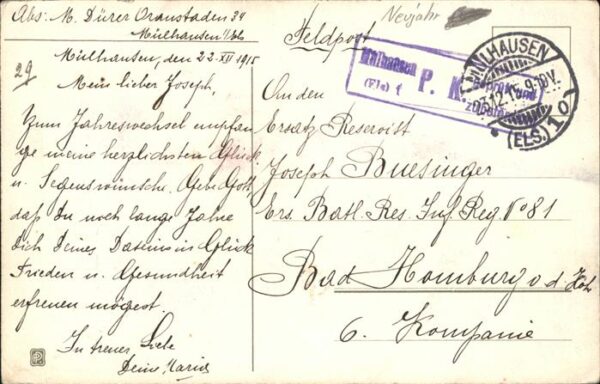 Abs: M. Dürer Oranstaden 34
Mülhausen i/Els
Mülhausen, den 22.XII 1915
29
Mein lieber Joseph,
Zum Jahreswechsel empfan
ge meine herzlichsten Glück
u. Segenswünsche. Gebe Gott,
daß Du noch lange Jahre
Dich Deines Daseins in Glück
Frieden u. Gesundheit
erfreuen mögest.
In treuer Liebe
Deine Marie
Neujahr
Feldpost
Mülhausen
(Els) 1
P. K.
MÜLHAUSEN
(ELS.) 1
An den
Ersatz Reservist
Joseph Buesinger
Ers. Batl. Res. Inf. Reg No 81
Bad Homburg v d. Höh
6. Kompanie